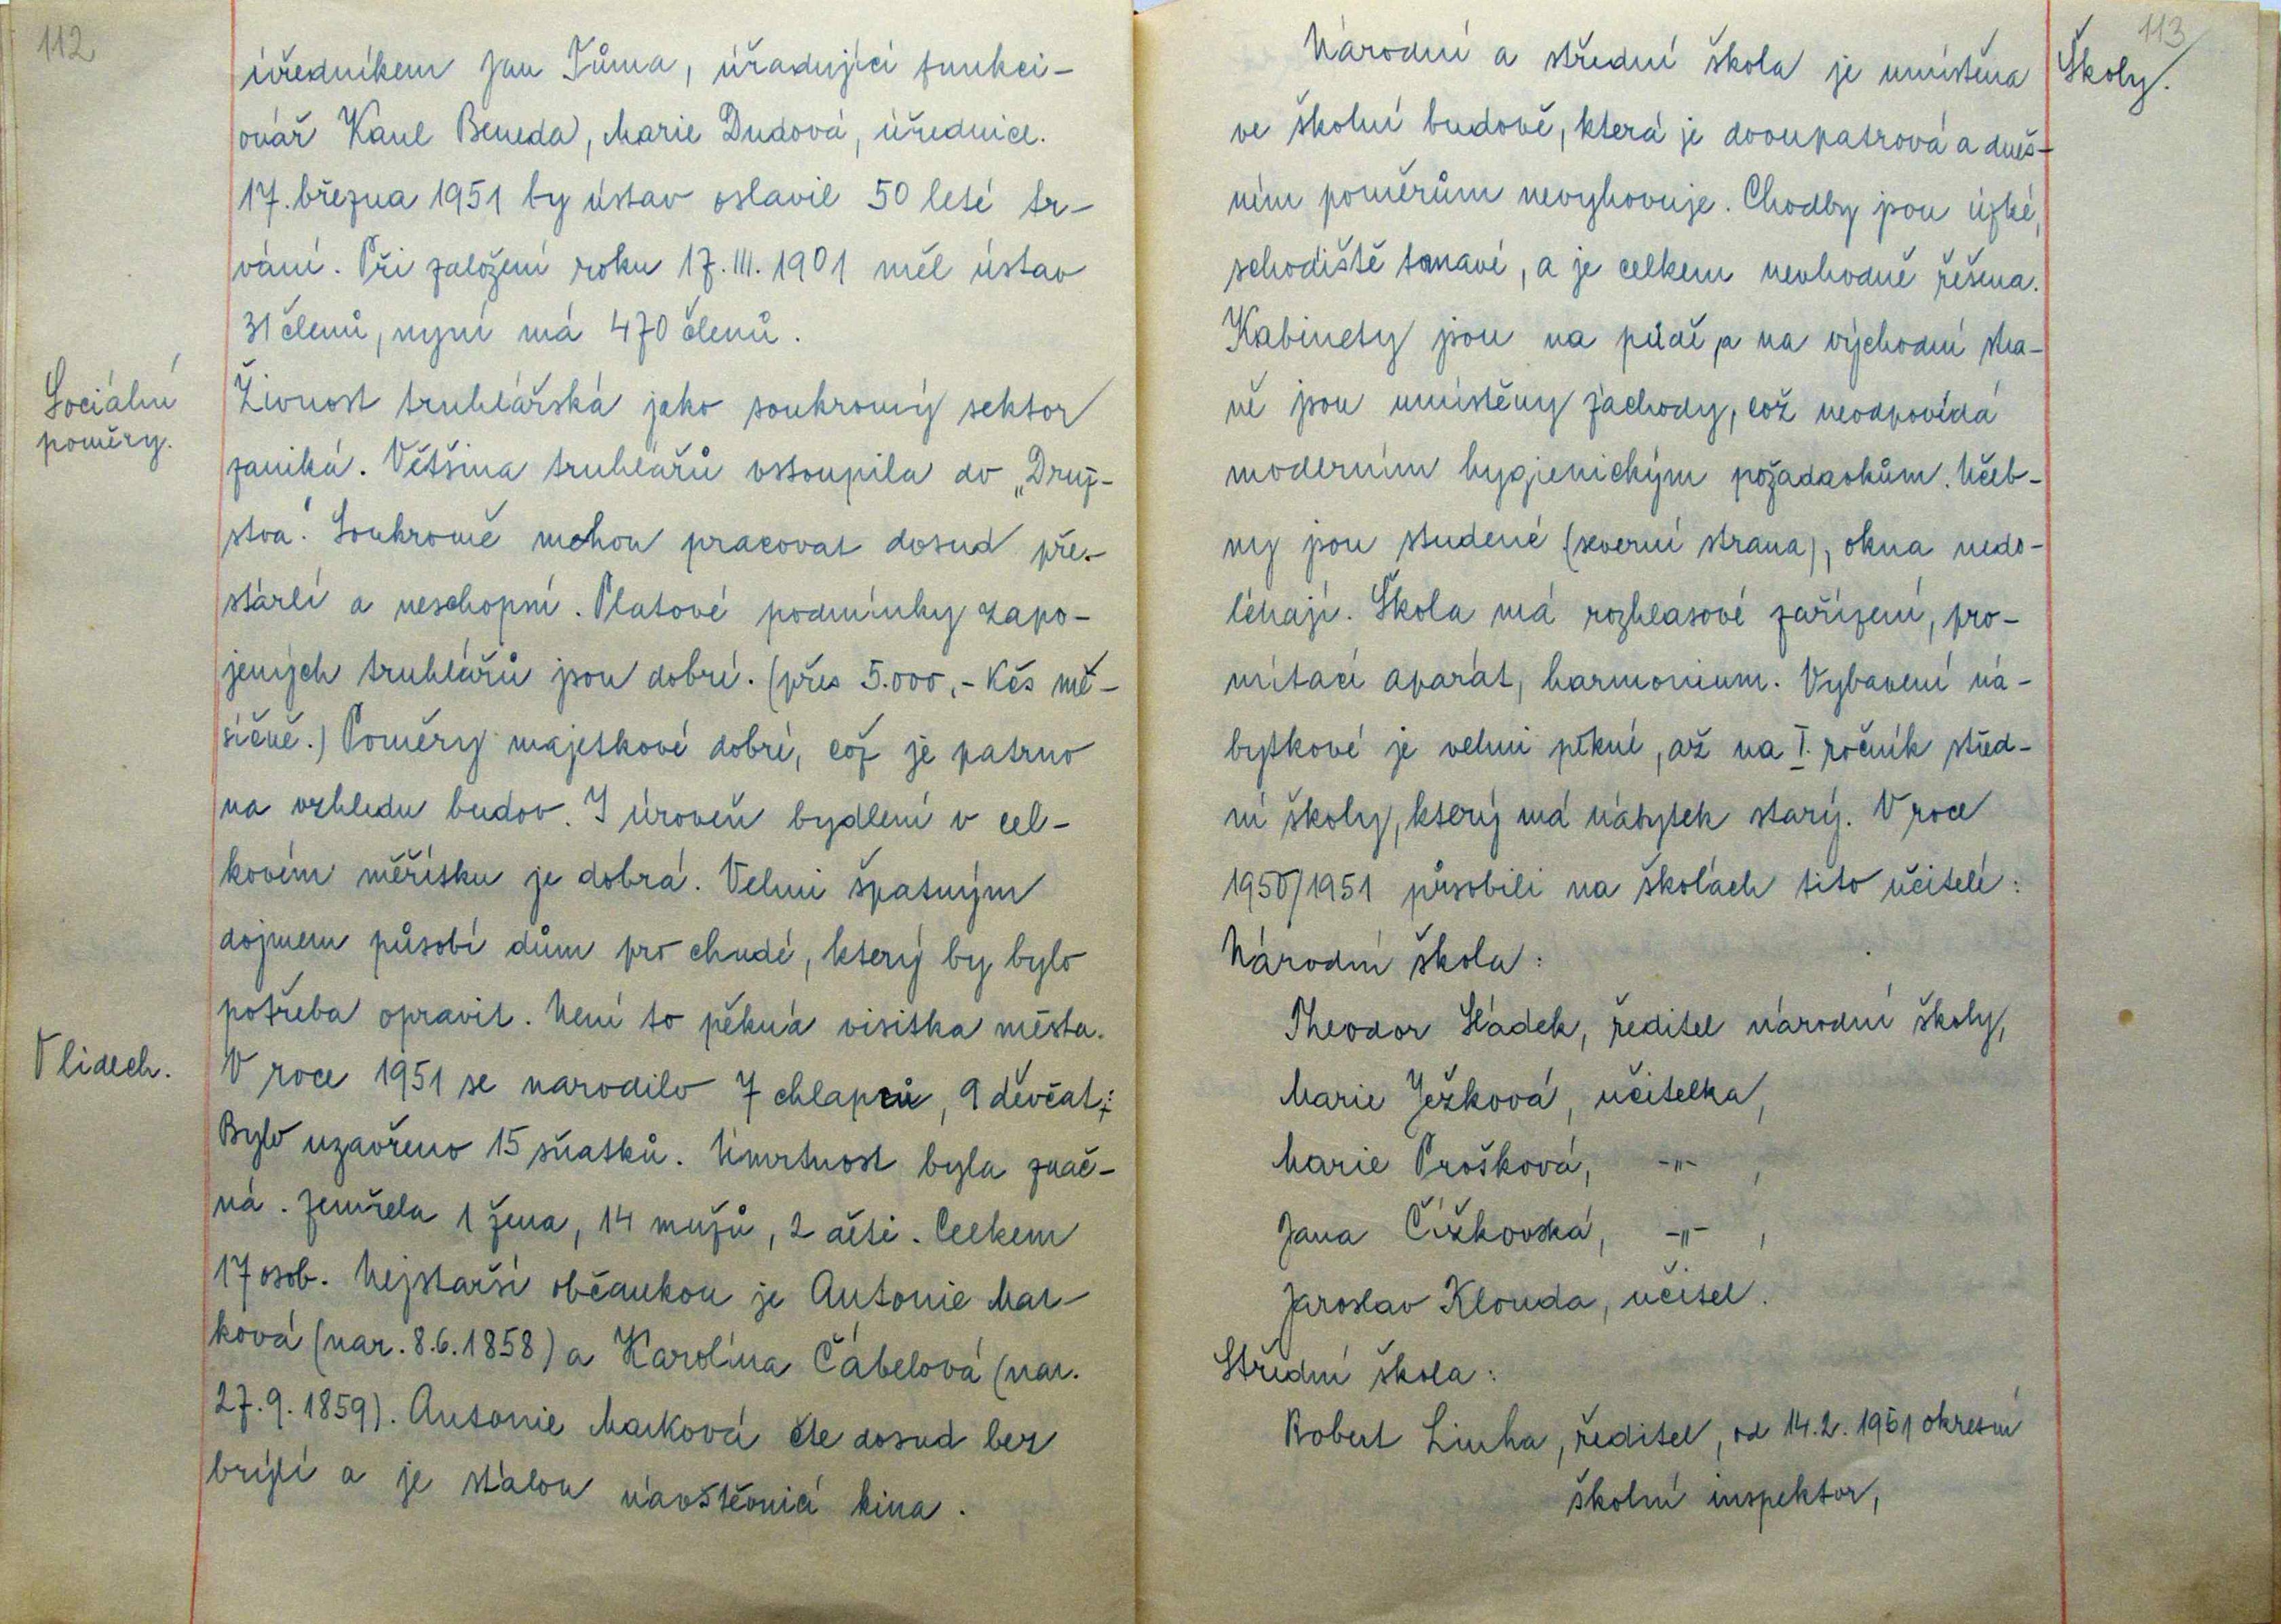 112
úředníkem Jan Tůma, úřadující funkci-
onář Karel Beneda, Marie Dudová, úřednice.
17. března 1951 by ústav oslavil 50 leté tr-
vání. Při založení roku 17. III. 1901 měl ústav
31 členů, nyní má 470 členů.
Sociální
poměry.
Živnost truhlářská jako soukromý sektor
zaniká. Většina truhlářů vstoupila do „Druž-
stva". Soukromě mohou pracovat dosud pře-
stárlí a neschopní. Platové podmínky zapo-
jených truhlářů jsou dobré. (přes 5.000,- Kčs mě-
síčně.) Poměry majetkové dobré, což je patrno
na vzhledu budov. I úroveň bydlení v cel-
kovém měřítku je dobrá. Velmi špatným
dojmem působí dům pro chudé, který by bylo
potřeba opravit. Není to pěkná visitka města.
V lidech.
V roce 1951 se narodilo 7 chlapců, 9 děvčat;
Bylo uzavřeno 15 sňatků. Úmrtnost byla znač-
ná. Zemřela 1 žena, 14 mužů, 2 děti. Celkem
17 osob. Nejstarší občankou je Antonie Mar-
ková (nar. 8.6.1858) a Karolína Čábelová (nar.
27.9.1859). Antonie Marková čte dosud bez
brýlí a je stálou návštěvnicí kina.
113
Školy.
Národní a střední škola je umístěna
ve školní budově, která je dvoupatrová a dneš-
ním poměrům nevyhovuje. Chodby jsou úzké,
schodiště tmavé, a je celkem nevhodně řešena.
Kabinety jsou na půdě, a na východní stra-
ně jsou umístěny záchody, což neodpovídá
moderním hygienickým požadavkům. Učeb-
ny jsou studené (severní strana), okna nedo-
léhají. Škola má rozhlasové zařízení, pro-
mítací aparát, harmonium. Vybavení ná-
bytkové je velmi pěkné, až na I. ročník střed-
ní školy, který má nábytek starý. V roce
1950/1951 působili na školách tito učitelé:
Národní škola:
Theodor Sládek, ředitel národní školy,
Marie Ježková, učitelka,
Marie Prošková, -„- ,
Jana Čížkovská, -„- ,
Jaroslav Klouda, učitel.
Střední škola:
Robert Linha, ředitel, od 14.2.1951 okresní
školní inspektor,